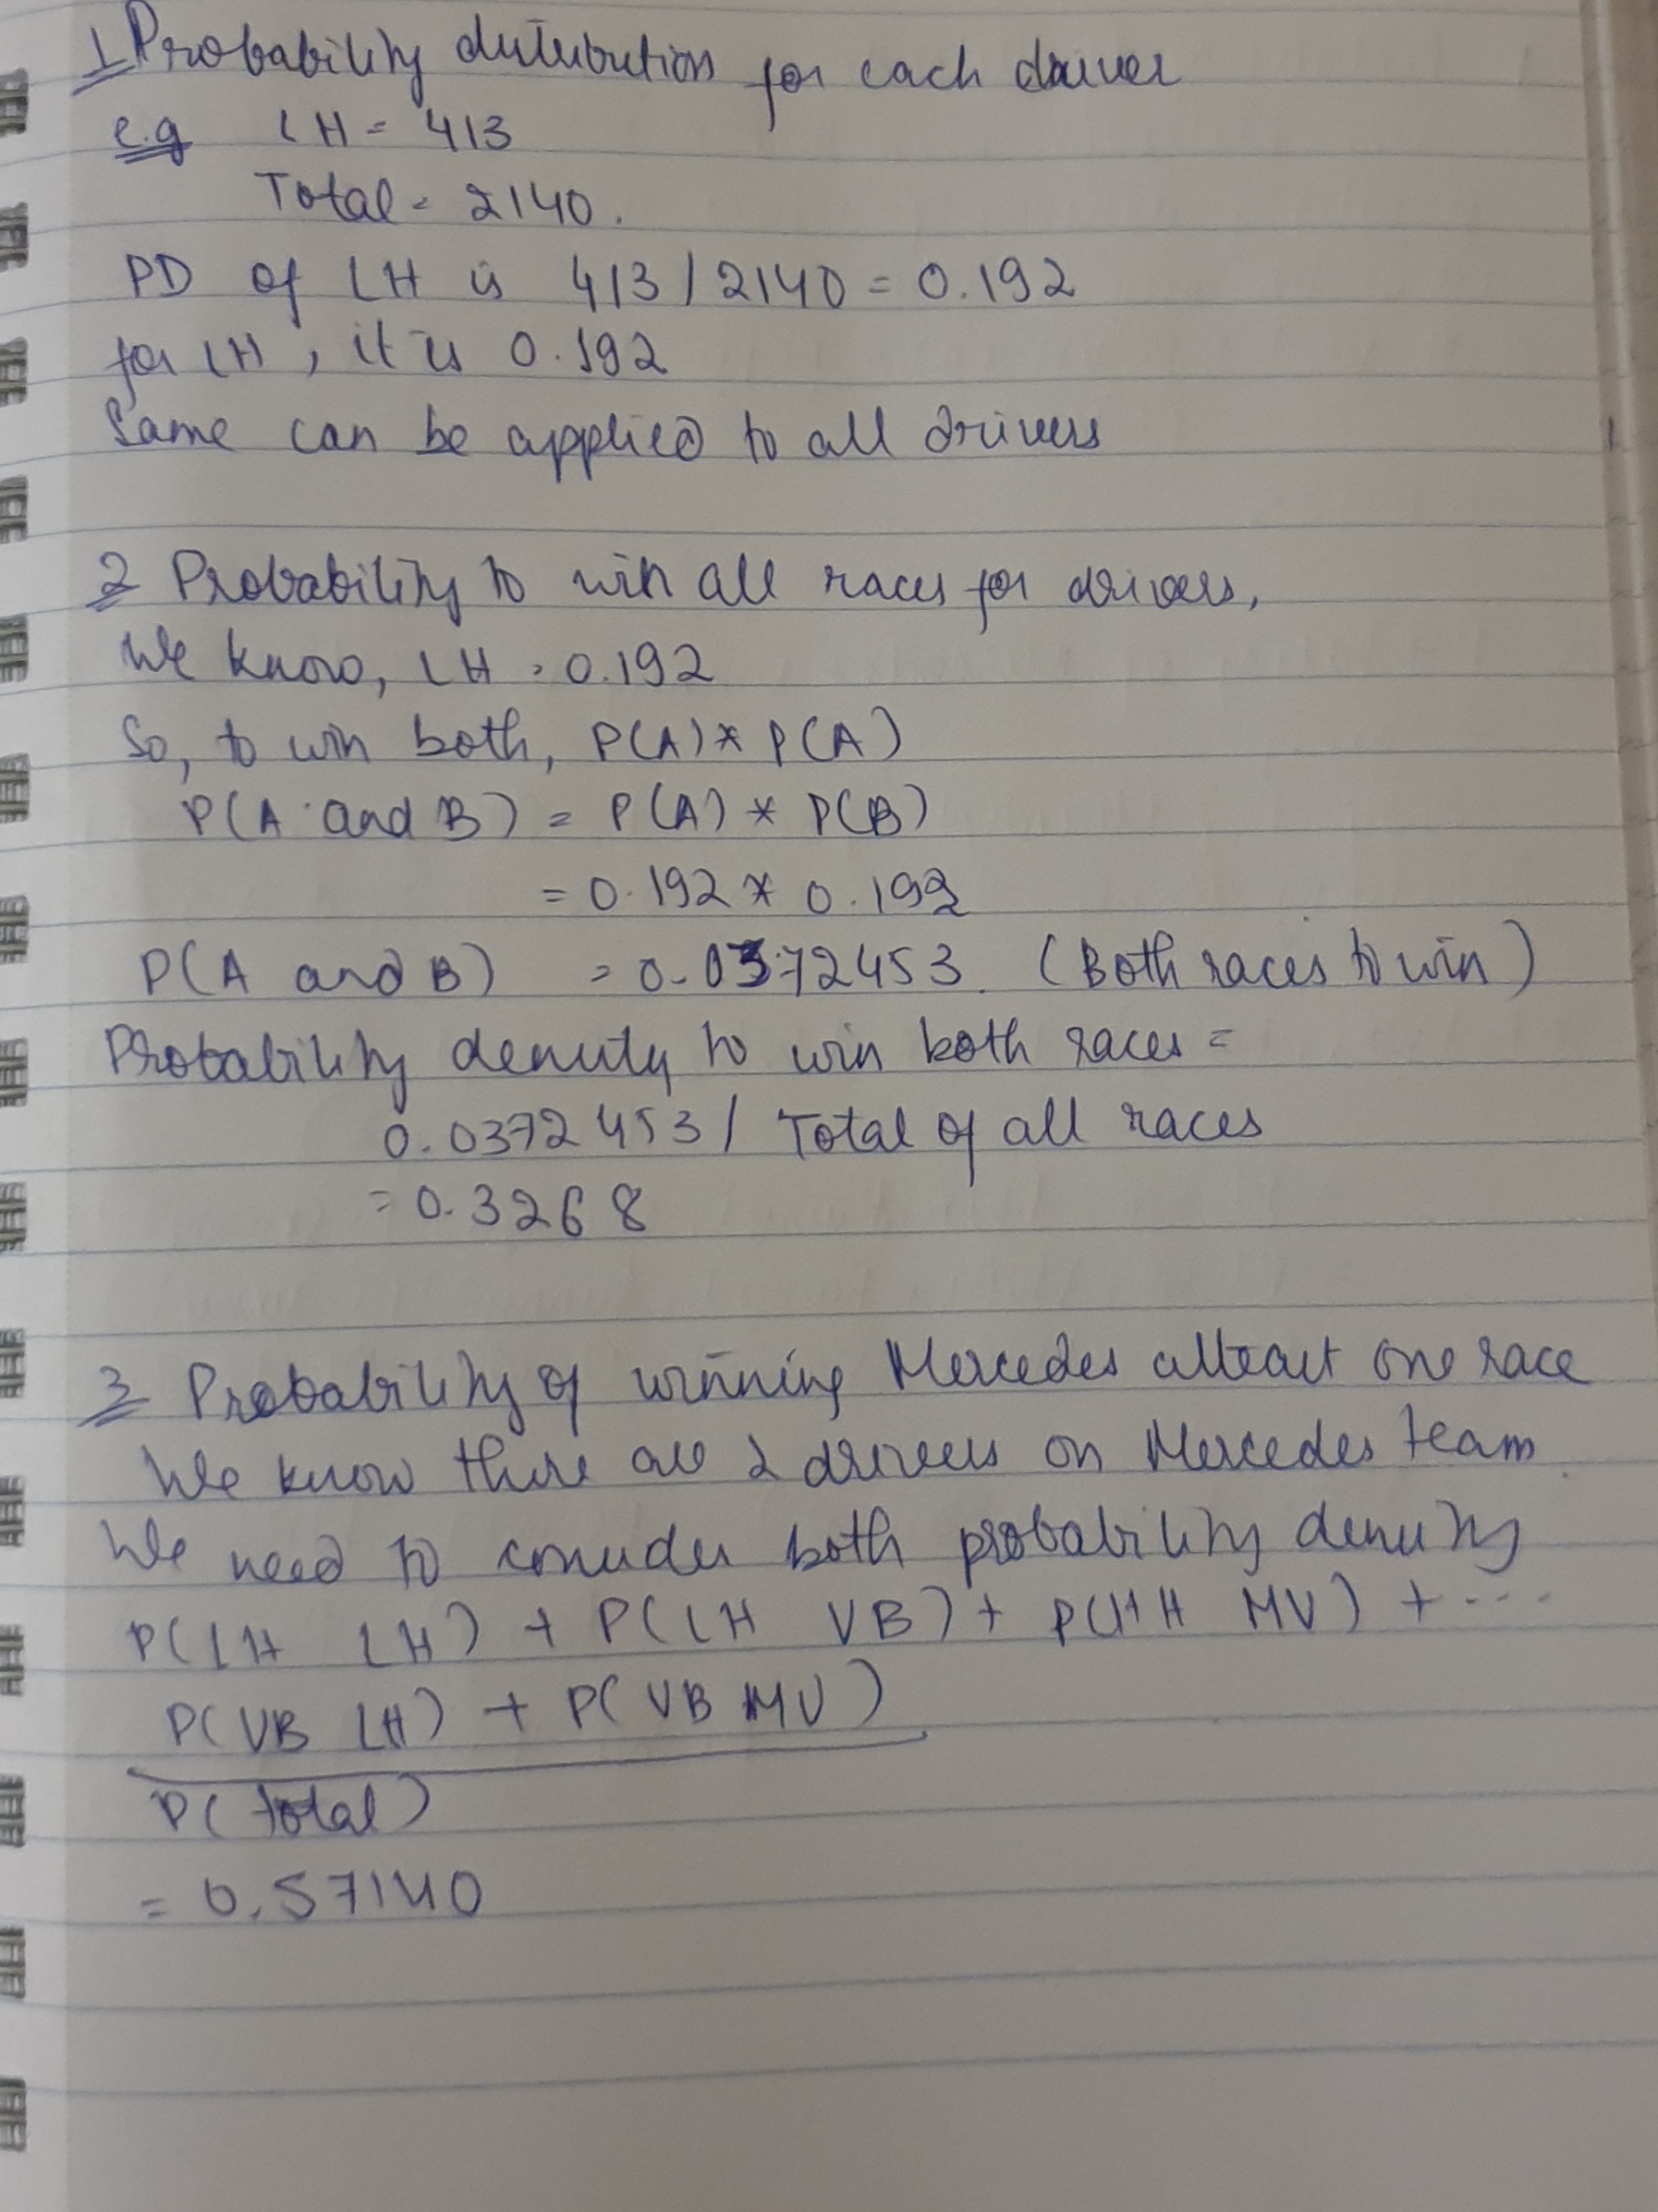 1 Probability distribution for each driver
e.g LH = 413
Total = 2140.
PD of LH is 413 / 2140 = 0.192
for LH, it is 0.192
Same can be applied to all drivers
2 Probability to win all races for drivers,
We know, LH = 0.192
So, to win both, P(A) * P(A)
P(A and B) = P(A) * P(B)
= 0.192 * 0.192
P(A and B) = 0.0372453. (Both races to win)
Probability density to win both races =
0.0372453 / Total of all races
= 0.3268
3 Probability of winning Mercedes atleast one race
We know there are 2 drivers on Mercedes team.
We need to consider both probability density
P(LH LH) + P(LH VB) + P(LH MV) + ---
P(VB LH) + P(VB MV)
P(total)
= 0.57140